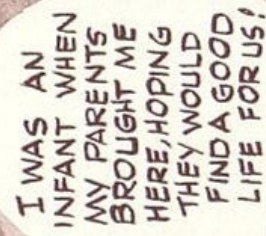 I WAS AN
INFANT WHEN
MY PARENTS
BROUGHT ME
HERE, HOPING
THEY WOULD
FIND A GOOD
LIFE FOR US!